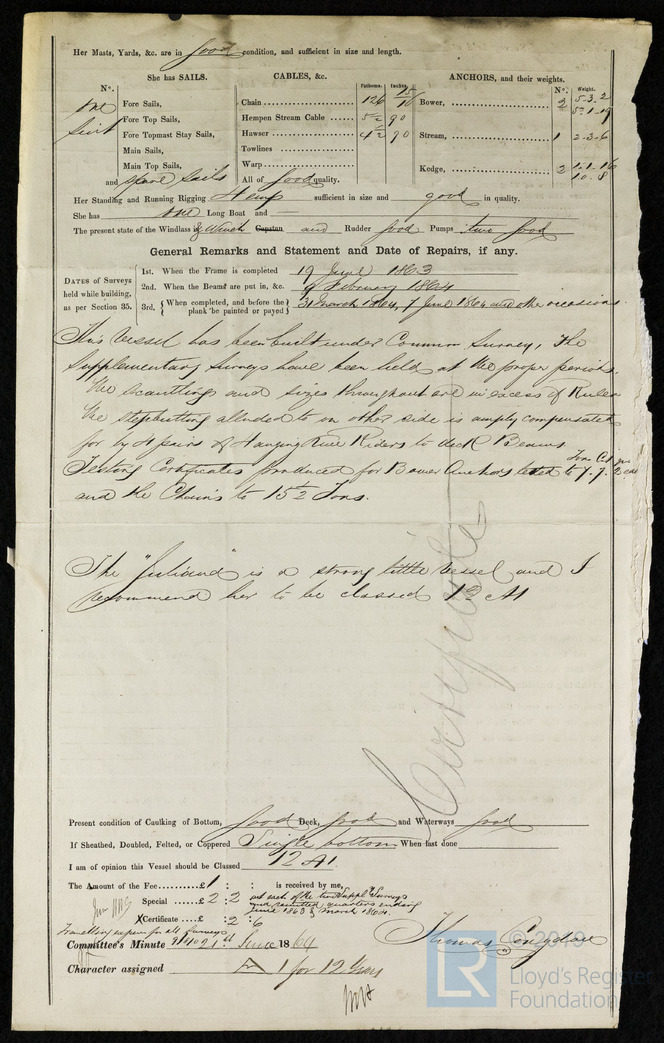 Her Masts, Yards, &c. are in good condition, and sufficient in size and length.
She has SAILS.
CABLES, &c.
ANCHORS, and their weights.
N°.
Fathoms. Inches.
N°. Weight.
One Suit
Fore Sails,
Fore Top Sails,
Fore Topmast Stay Sails,
Main Sails,
Main Top Sails,
and spare sails
Chain 126 15/16
Hempen Stream Cable 90
Hawser 90
Towlines
Warp
All of good quality.
Bower, 2 5.3.2
5.1.19
Stream, 1 2.3.6
Kedge, 2 1.1.16
1.0.8
Her Standing and Running Rigging Hemp sufficient in size and good in quality.
She has one Long Boat and —
The present state of the Windlass & Winch Capstan and Rudder good Pumps two good
General Remarks and Statement and Date of Repairs, if any.
DATES of Surveys held while building, as per Section 35.
1st. When the Frame is completed 19 June 1863
2nd. When the Beams are put in, &c. 9 February 1864
3rd. {When completed, and before the plank be painted or payed} 31 March 1864, 7 June 1864 and other occasions.
This Vessel has been built under Common Survey, The
Supplementary Surveys have been held at the proper periods.
The scantlings and sizes throughout are in excess of Rules
the stepbutting alluded to on other side is amply compensated
for by 4 pairs of Hanging Knee Riders to deck Beams
Testing Certificates produced for Bower Anchors tested to 7.7.2
and the Chains to 15½ Tons.
The "Juliana" is a strong little Vessel and I
recommend her to be classed 12 A1
Present condition of Caulking of Bottom, good Deck, good and Waterways good
If Sheathed, Doubled, Felted, or Coppered Single bottom When last done
I am of opinion this Vessel should be Classed 12 A1
The Amount of the Fee £1 : : is received by me,
Special £2 : 2 at each of the two Suppl Surveys
and quarters ending
June 1863 & March 1864.
Certificate £ : 2 : 6
travelling expenses for all Surveys
Thomas Congdon
Committee's Minute 21st June 1864
Character assigned A 1 for 12 Years
© 2019
LR
Lloyd's Register
Foundation